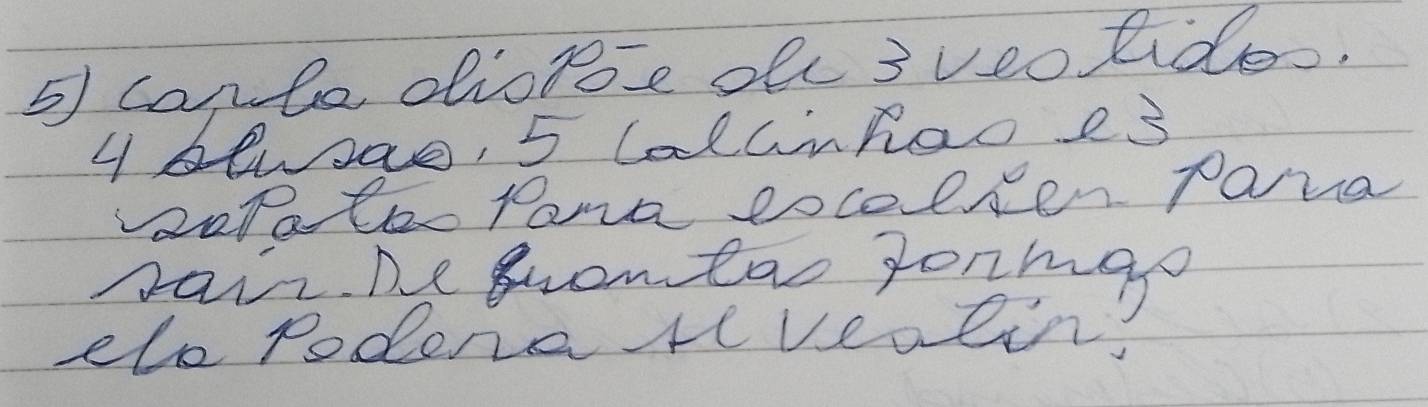 5) Carla dispõe de 3 vestidos.
4 blusas, 5 calcinhas e 3
sapatos para escolher para
sair. De quantas formas
ela poderá se vestir?